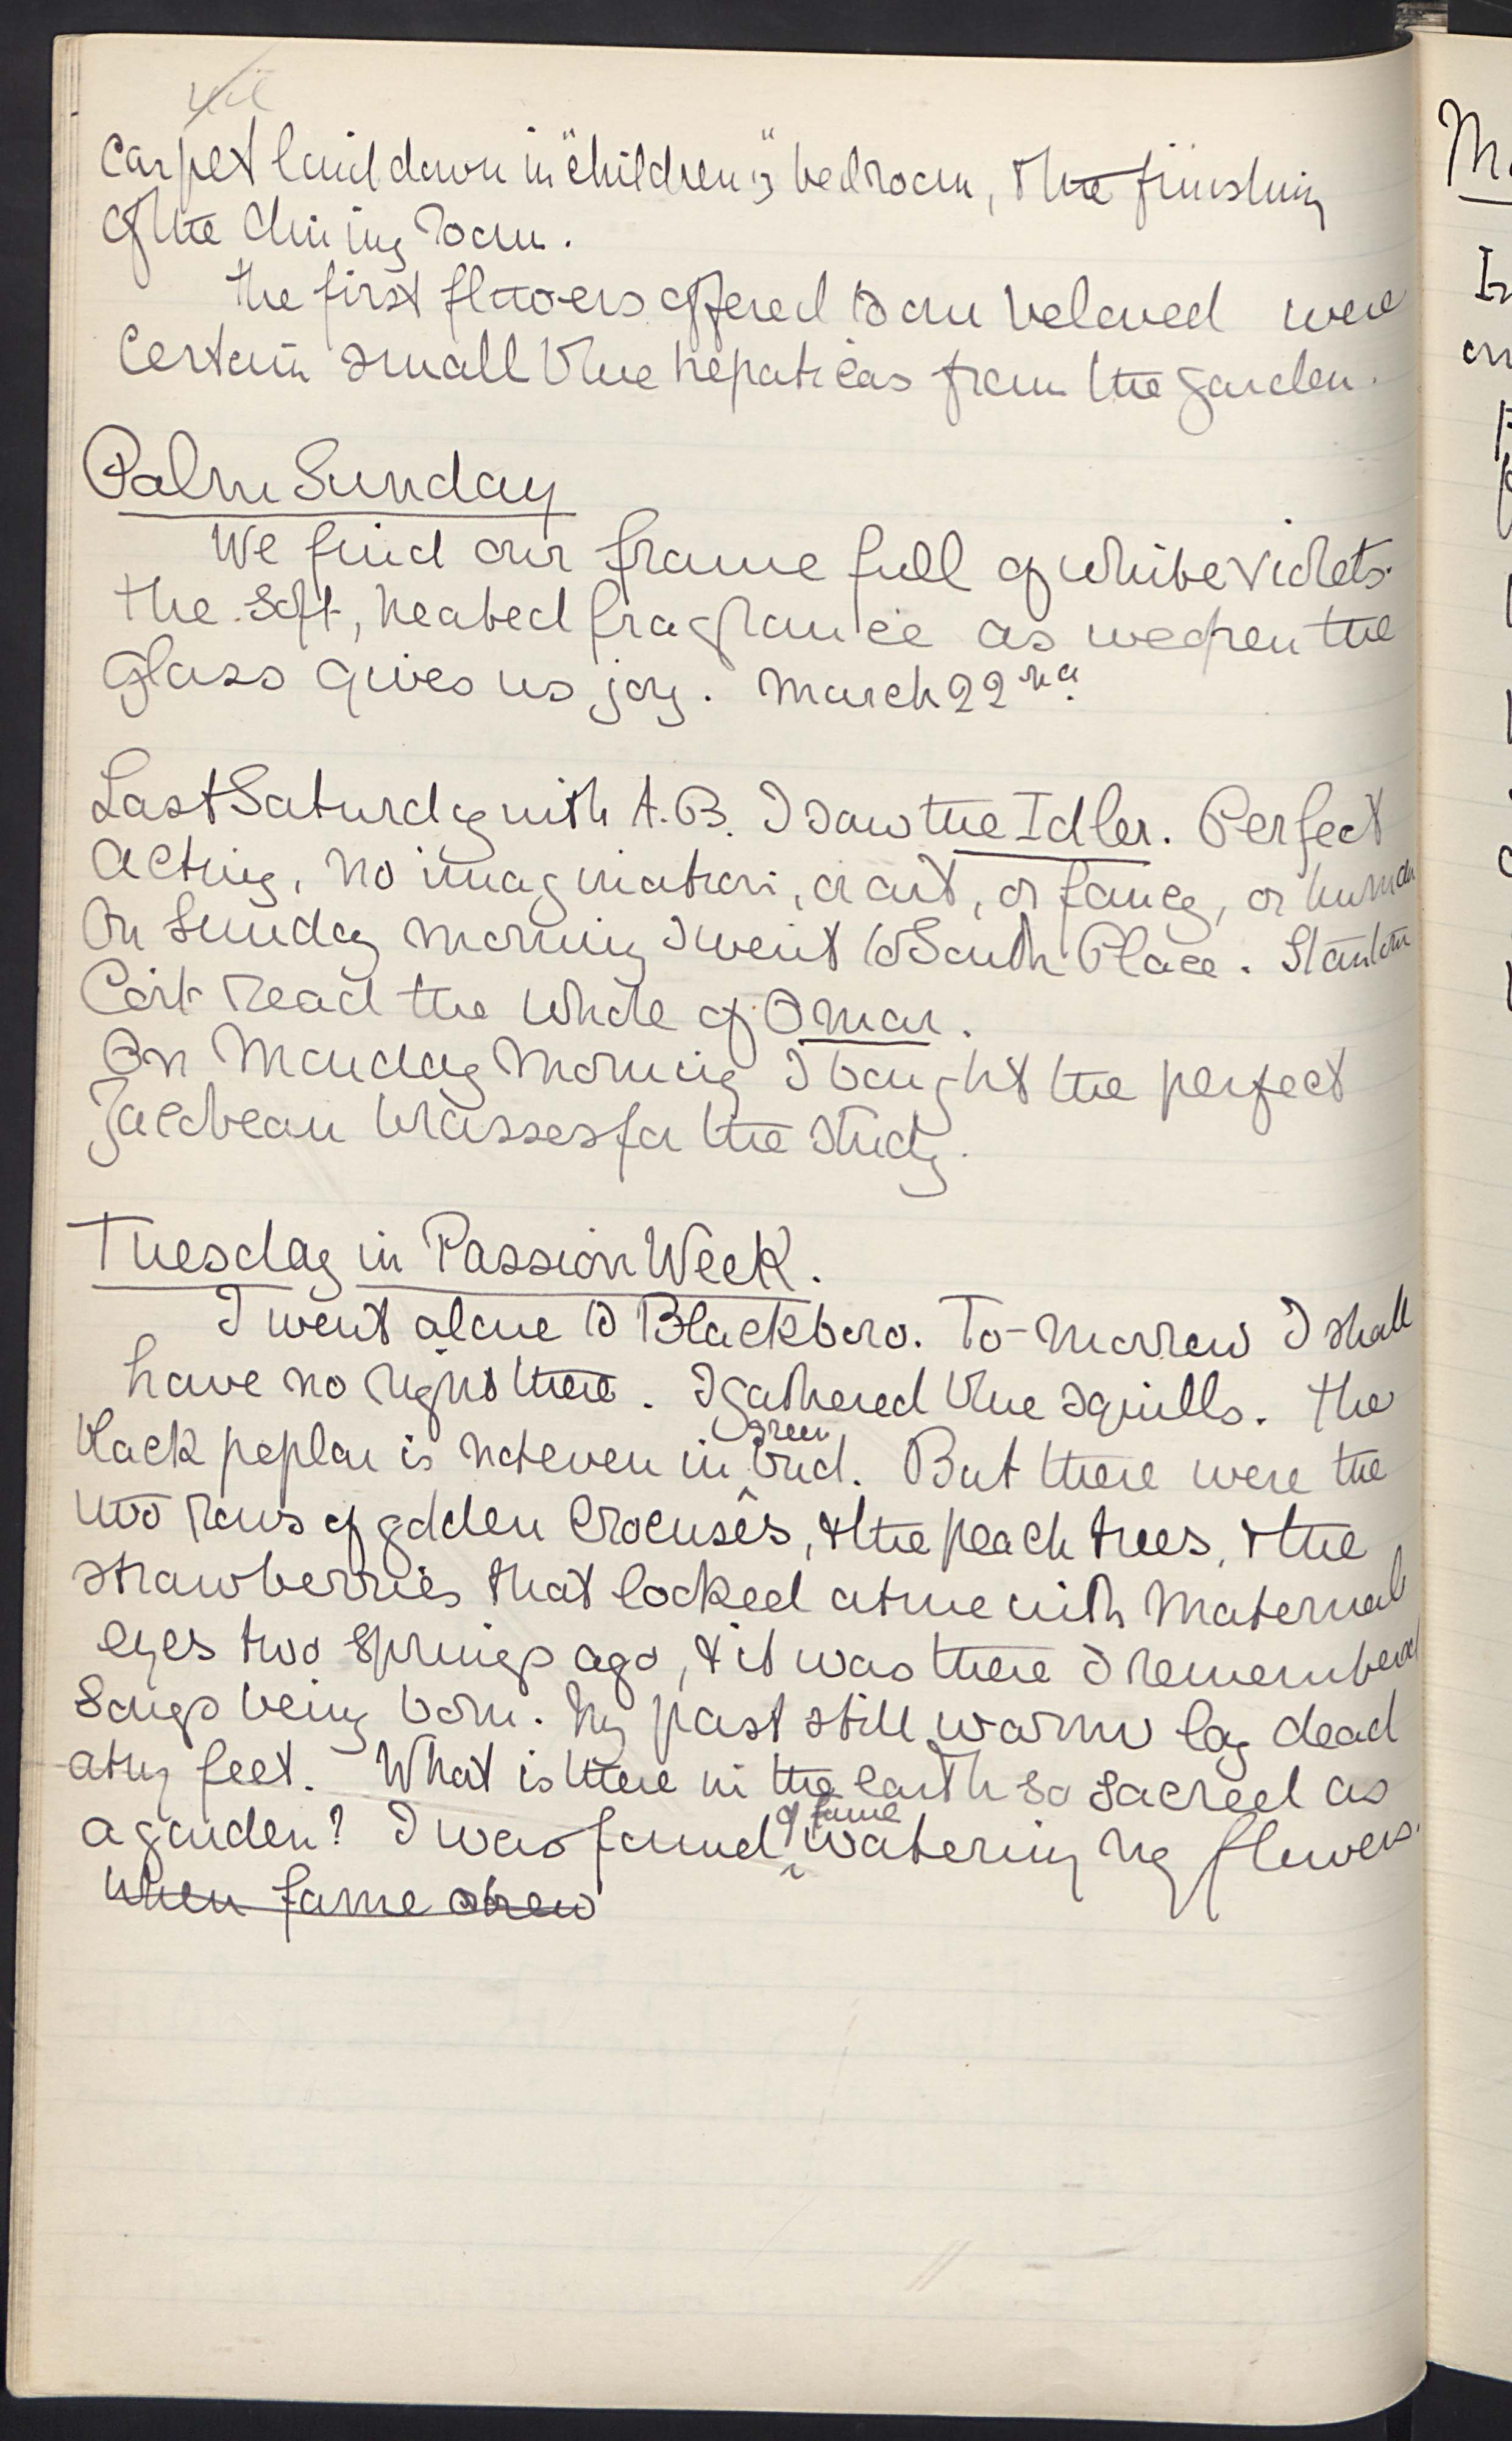 carpet laid down in "children's" bedroom, & the finishing
of the dining room.
The first flowers offered to our beloved were
certain small blue hepaticas from the garden.
Palm Sunday
We find our frame full of white violets.
The soft, heated fragrance as we open the
glass gives us joy. March 22nd.
Last Saturday with A.B. I saw the Idler. Perfect
acting, no imagination, or art, or fancy, or human
On Sunday morning I went to South Place. Stanton
Coit read the whole of Omar.
On Monday morning I bought the perfect
Jacobean brasses for the study.
Tuesday in Passion Week.
I went alone to Blackboro. To-morrow I shall
have no right there. I gathered blue squills. The
black poplar is not even in green bud. But there were the
two rows of golden crocuses, & the peach trees, & the
strawberries that looked at me with maternal
eyes two springs ago, & it was there I remembered
songs being born. My past still warm lay dead
at my feet. What is there in the earth so sacred as
a garden? I was found of fame watering my flowers.
when fame drew
M
In
on